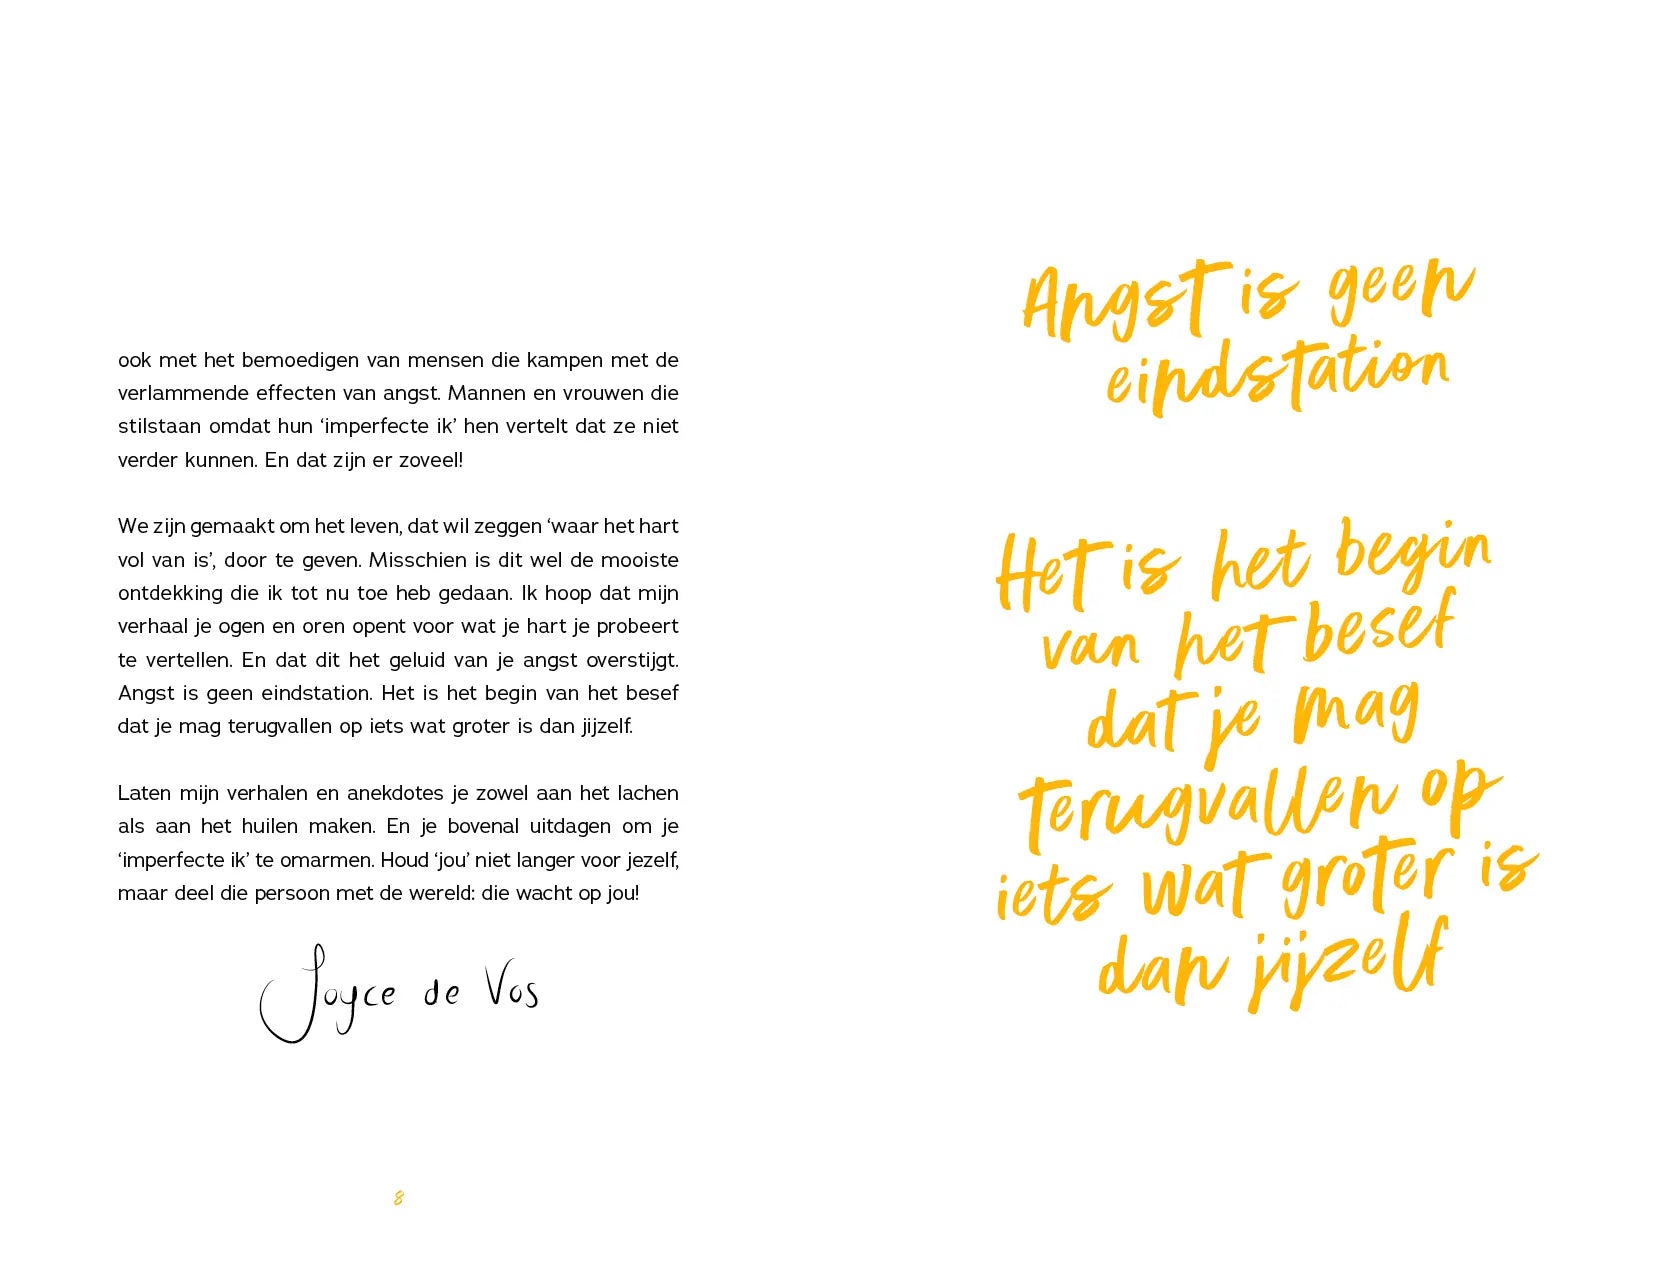 ook met het bemoedigen van mensen die kampen met de
verlammende effecten van angst. Mannen en vrouwen die
stilstaan omdat hun ‘imperfecte ik’ hen vertelt dat ze niet
verder kunnen. En dat zijn er zoveel!
We zijn gemaakt om het leven, dat wil zeggen ‘waar het hart
vol van is’, door te geven. Misschien is dit wel de mooiste
ontdekking die ik tot nu toe heb gedaan. Ik hoop dat mijn
verhaal je ogen en oren opent voor wat je hart je probeert
te vertellen. En dat dit het geluid van je angst overstijgt.
Angst is geen eindstation. Het is het begin van het besef
dat je mag terugvallen op iets wat groter is dan jijzelf.
Laten mijn verhalen en anekdotes je zowel aan het lachen
als aan het huilen maken. En je bovenal uitdagen om je
‘imperfecte ik’ te omarmen. Houd ‘jou’ niet langer voor jezelf,
maar deel die persoon met de wereld: die wacht op jou!
Joyce de Vos
8
Angst is geen
eindstation
Het is het begin
van het besef
dat je mag
terugvallen op
iets wat groter is
dan jijzelf